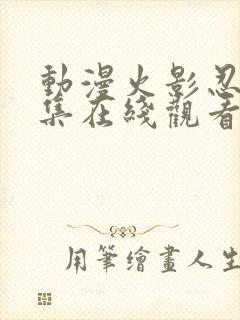 動漫火影忍
集在綫觀看
用筆繪畫人生